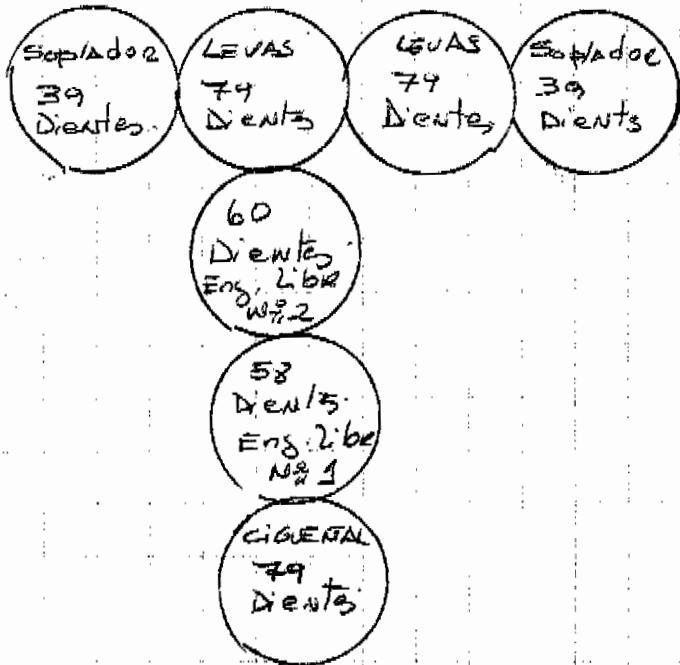 Soplador
39
Dientes.
LEVAS
79
Dients
LEVAS
79
Dientes
Soplador
39
Dients
60
Dientes
Eng. Libre
Nº 2
58
Dients.
Eng. Libre
Nº 1
CIGUEÑAL
79
Dientes